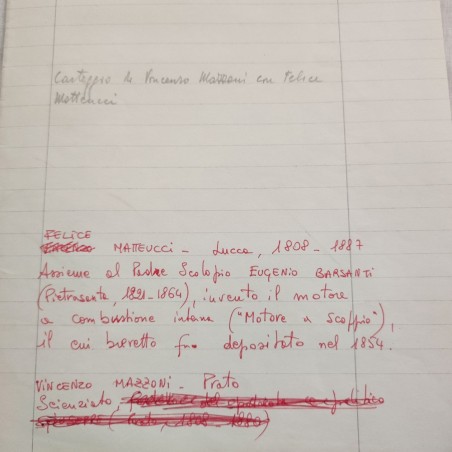 Carteggio di Vincenzo Mazzoni con Felice
Matteucci
FELICE
MATTEUCCI - Lucca, 1808 - 1887
Assieme al Padre Scolopio EUGENIO BARSANTI
(Pietrasanta, 1821-1864), inventò il motore
a combustione interna ("Motore a Scoppio"),
il cui brevetto fu depositato nel 1854.
VINCENZO MAZZONI - Prato
Scienziato,